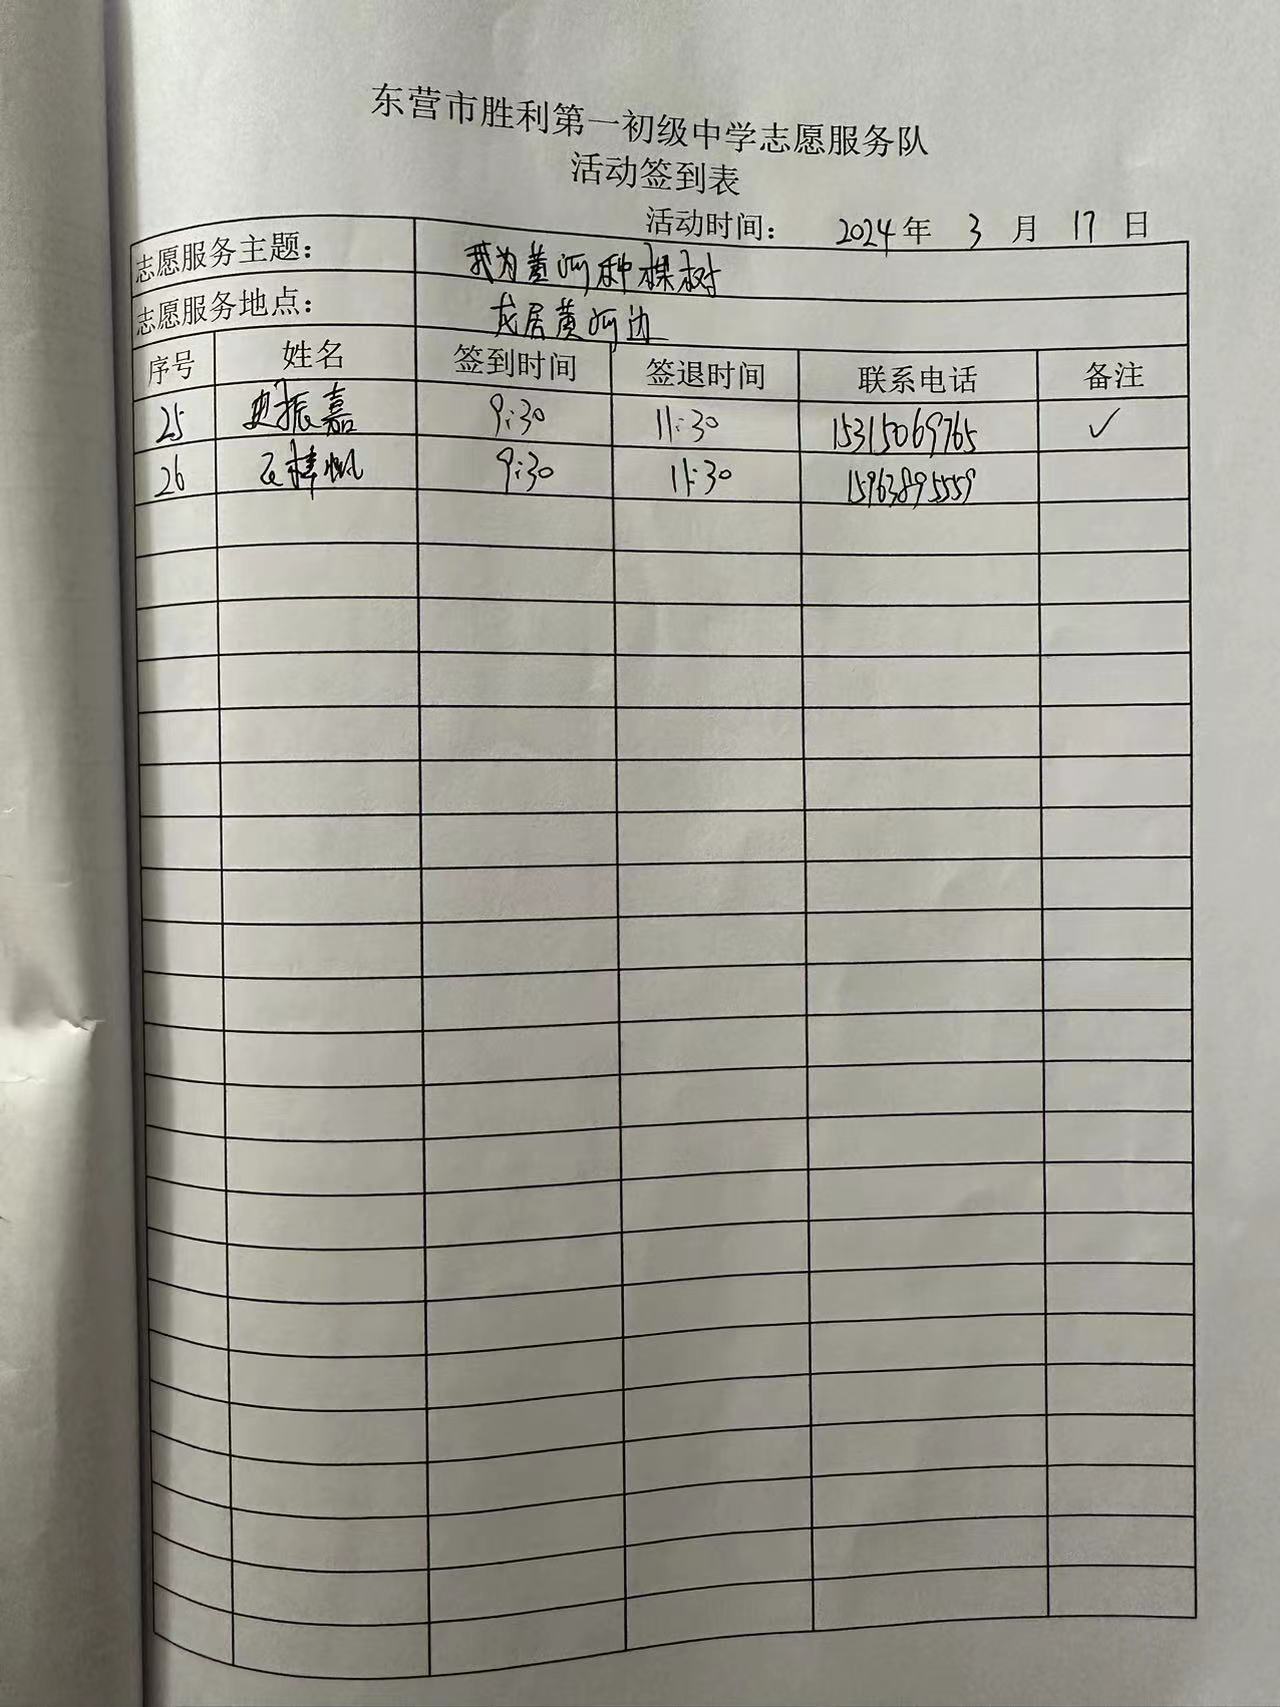 东营市胜利第一初级中学志愿服务队
活动签到表
活动时间： 2024 年 3 月 17 日
志愿服务主题： 我为黄河种棵树
志愿服务地点： 龙居黄河边
序号 姓名 签到时间 签退时间 联系电话 备注
25 史振嘉 9:30 11:30 15315069765 ✓
26 9:30 11:30 15963895559